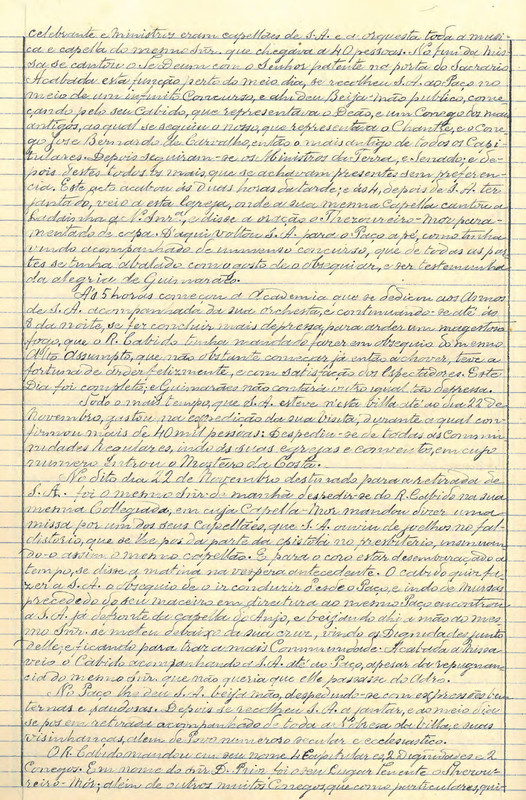 celebrante e Ministros eram capellães de S.A. e a orquesta toda a musi-
ca e capella do mesmo Snr. que chegava a 40 pessoas. No fim da Mis-
sa se cantou o Te Deum com o Senhor patente na porta do Sacrario.
Acabada esta função, perto do meio dia, se recolheu S.A. ao Paço no
meio de um infinito Concurso, e ahi deu Beija-mão publico, come-
çando pelo seu Cabido, que representava o Deão, e um Conego dos mais
antigos, ao qual se seguiu o nosso, que representava o Chantre, e o Cone-
go José Bernardo de Carvalho, então o mais antigo de todos os Capi-
tulares. Depois seguiram-se os Ministros da Terra, e Senado, e de-
pois destes todos os mais que se achavam presentes sem preferen-
cia. Este acto acabou ás duas horas da tarde; e ás 4, depois de S.A. ter
jantado, veio a esta Igreja, onde a sua mesma Capella cantou a
Ladainha de N. Snrª, e disse a oração o Thezoureiro-Mor para-
mentado de capa. D'aqui voltou S.A. para o Paço a pé, como tinha
vindo acompanhado de immenso concurso, que de todas as par-
tes se tinha abalado com o gosto de o obsequiar, e ser testemunha
da alegria de Guimarães.
A's 5 horas começou a Academia que se dedicou aos Annos
de S.A. acompanhada da sua orchesta, e continuando-se até ás
8 da noite, se fez concluir mais depressa, para arder um magestoso
fogo, que o R. Cabido tinha mandado fazer em obsequio do mesmo
Alto Assumpto, que não obstante começar já então a chover, teve a
fortuna de arder felizmente, e com satisfação dos Espectadores. Este
Dia foi completo, e Guimarães não contará outro igual tão depressa.
Todo o mais tempo, que S.A. esteve n'esta villa até ao dia 22 de
Novembro, gastou na expedição da sua Visita, durante a qual con-
firmou mais de 40 mil pessoas: Despediu-se de todas as Commu-
nidades Regulares, indo ás suas egrejas e conventos, em cujo
numero entrou o Mosteiro da Costa.
No Dito dia 22 de Novembro destinado para a retirada de
S.A. foi o mesmo Snr. de manhã despedir-se do R. Cabido na sua
mesma Collegiada, em cuja Capella-Mor mandou dizer uma
missa por um dos seus Capellães, que S.A. ouviu de joelhos no fal-
distorio, que se lhe pos da parte da epistola no presbiterio,
do-o assim o mesmo capellão. E para o coro estar desembaraçado a
tempo, se disse a matina na vespera antecedente. O cabido quiz fa-
zer a S.A. o obsequio de o ir conduzir desde o Paço, e indo de murças
precedido do seu maceiro em direitura ao mesmo Paço encontrou
a S.A. já defronte da capella do Anjo, e beijando ahi a mão ao mes-
mo Snr. se meteu debaixo da sua cruz, vindo as Dignidades junto
Delle e ficando para traz a mais Communidade. Acabada a Missa
veio o Cabido acompanhando a S.A. até ao Paço, apesar da repugnan-
cia do mesmo Snr que não queria que elle passasse do Adro.
No Paço lhes deu S.A. beija mão, despedindo-se com expressões bem
ternas e saudosas. Depois se recolheu S.A. a jantar, e ao meio dia
se pos em retirada acompanhado de toda a Nobresa da villa, e suas
visinhanças, alem de Povo numeroso secular e ecclesiastico.
O R. Cabido mandou em seu nome 4 Capitulares, 2 Dignidades e 2
Conegos. Em nome do Snr. D. Prior foi o seu Lugar Tenente o Thezou-
reiro-Mor; alem de outros muitos Conegos, que como particulares, qui-